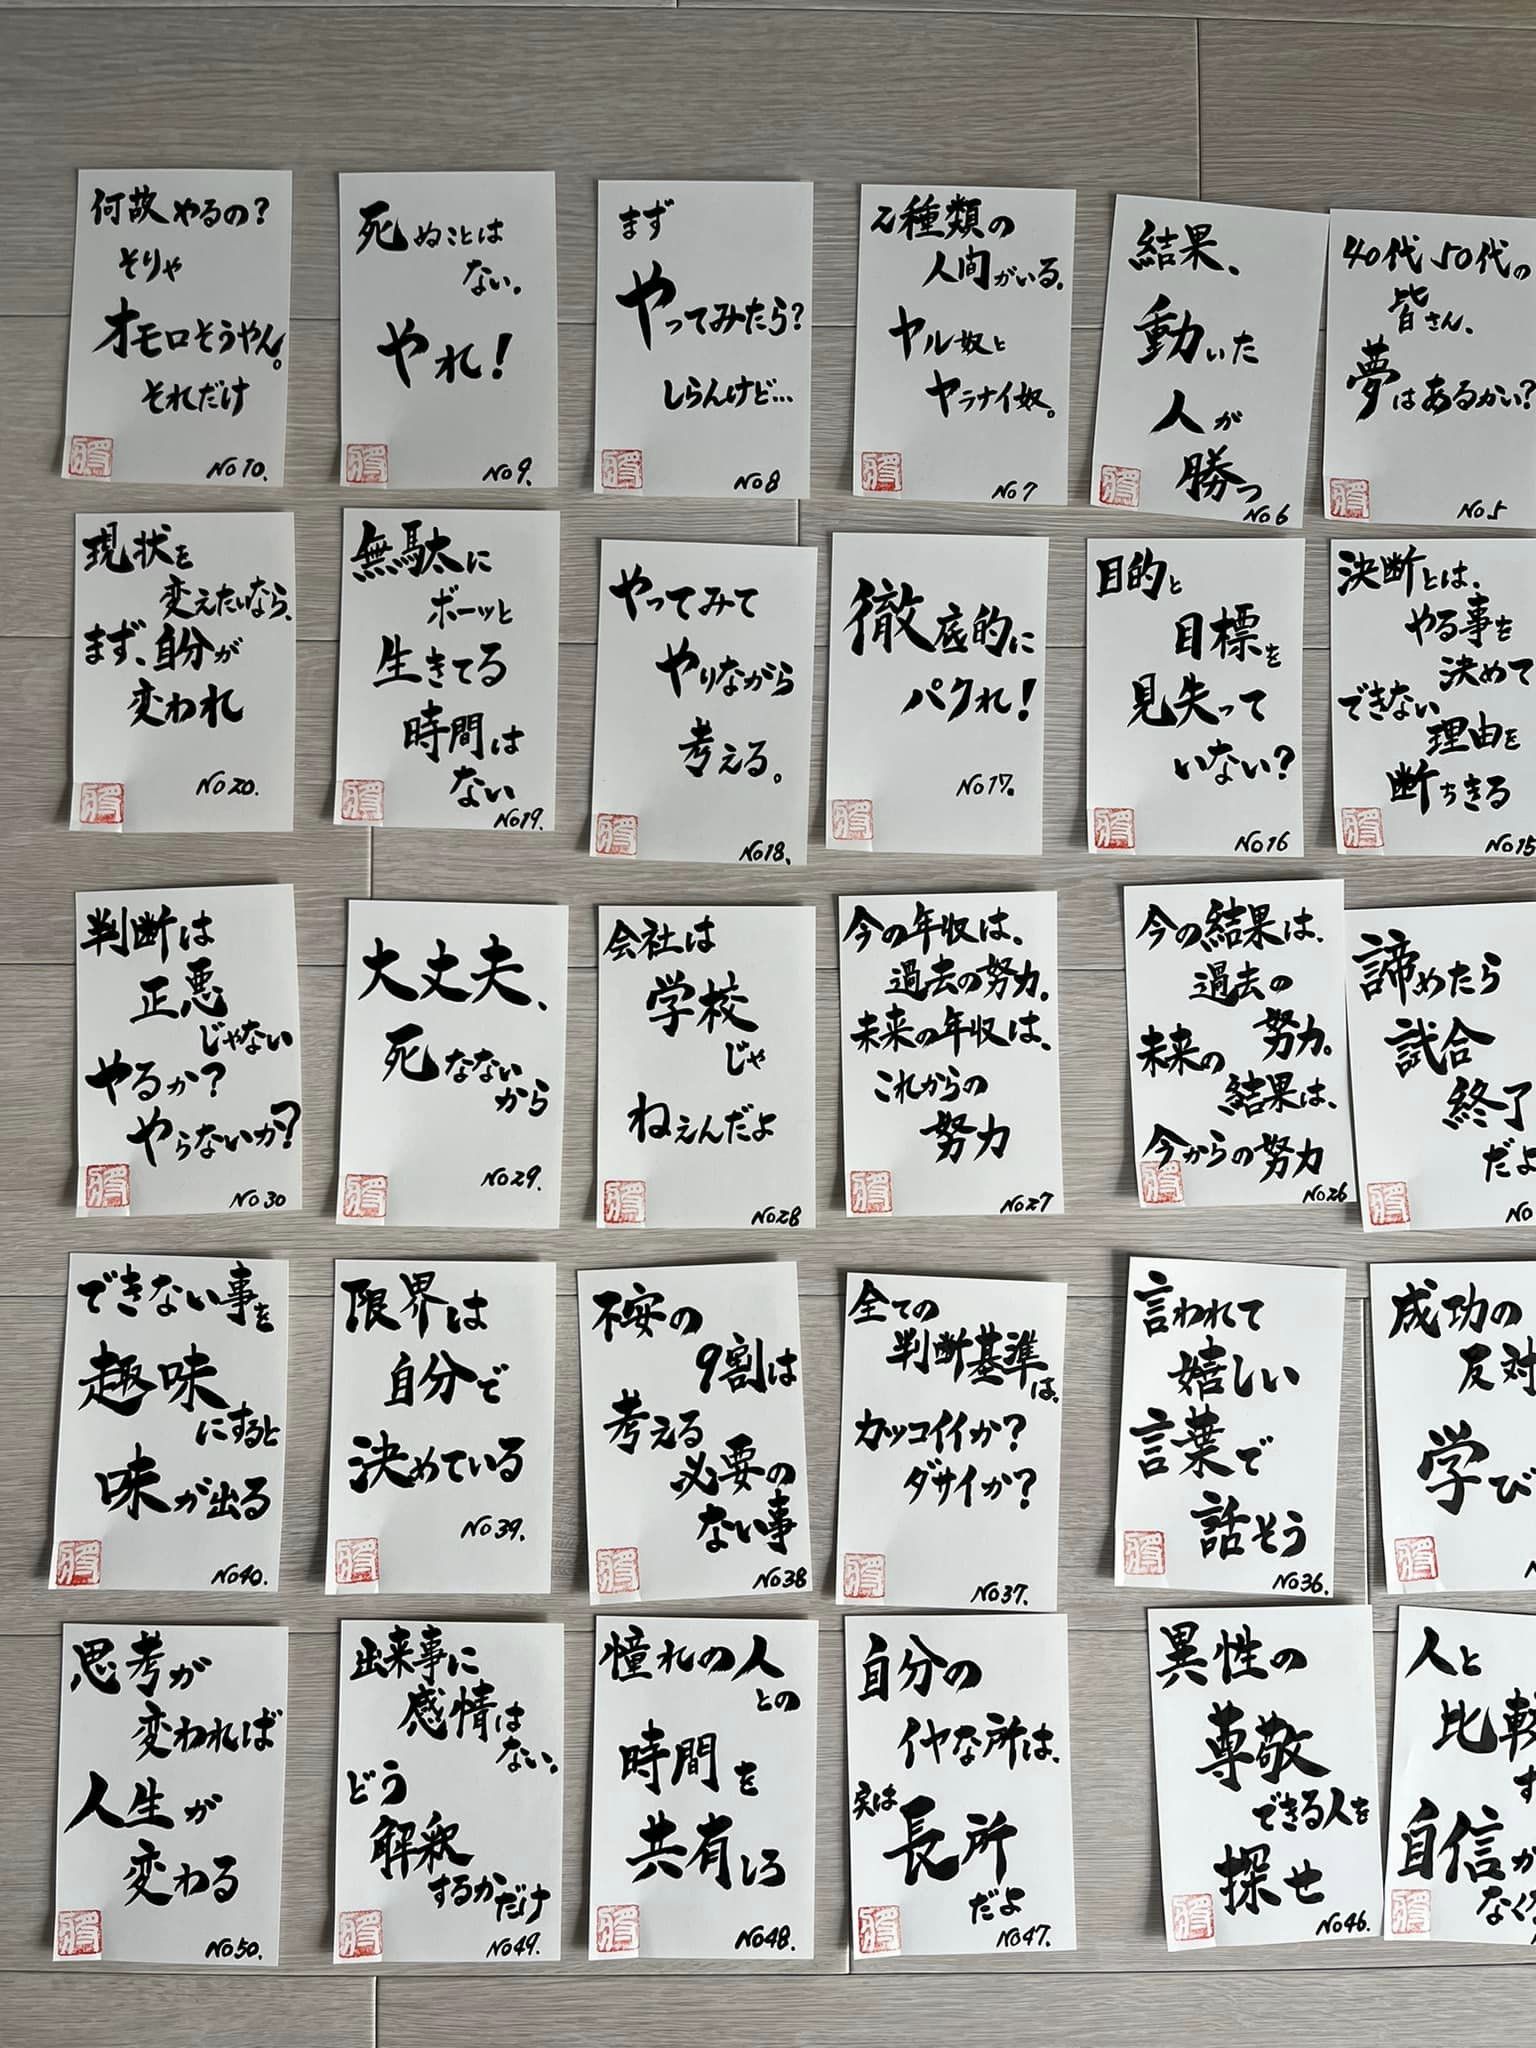 何故やるの?
そりゃ
オモロそうやん。
それだけ
No10.
死ぬことは
ない。
やれ!
No9.
まず
やってみたら?
しらんけど…
No8
2種類の
人間がいる。
ヤル奴と
ヤラナイ奴。
No7
結果、
動いた
人が
勝つ
No6
40代50代の
皆さん、
夢はあるかい?
No5
現状を
変えたいなら、
まず、自分が
変われ
No20.
無駄に
ボーッと
生きてる
時間は
ない
No19.
やってみて
やりながら
考える。
No18.
徹底的に
パクれ!
No17.
目的と
目標を
見失って
いない?
No16
決断とは、
やる事を
決めて
できない
理由を
断ちきる
No15
判断は
正悪
じゃない
やるか?
やらないか?
No30
大丈夫、
死なない
から
No29.
会社は
学校
じゃ
ねえんだよ
No28
今の年収は、
過去の努力。
未来の年収は、
これからの
努力
No27
今の結果は、
過去の
努力。
未来の
結果は、
今からの努力
No26
諦めたら
試合
終了
だよ
No
できない事を
趣味
にすると
味が出る
No40.
限界は
自分で
決めている
No39.
不安の
9割は
考える
必要の
ない事
No38
全ての
判断基準
は、
カッコイイか?
ダサイか?
No37.
言われて
嬉しい
言葉で
話そう
No36.
成功の
反対
学び
思考が
変われば
人生が
変わる
No50.
出来事に
感情は
ない。
どう
解釈
するかだけ
No49.
憧れの人
との
時間を
共有しろ
No48.
自分の
イヤな所は、
実は
長所
だよ
No47.
異性の
尊敬
できる人を
探せ
No46.
人と
比較
す
自信が
なく